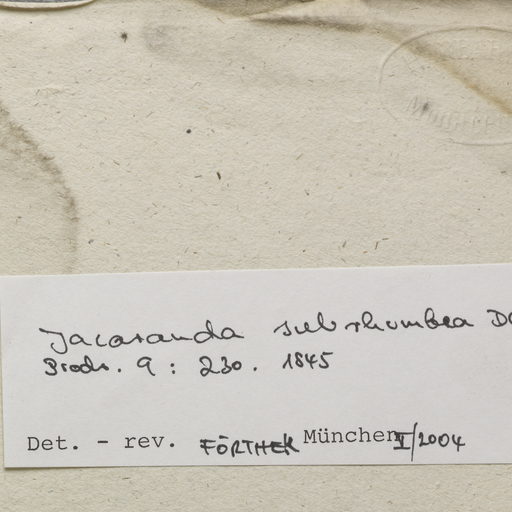 Jacaranda subrhombea DC
Prodr. 9 : 230. 1845
Det. - rev. FÖRTHER München V/2004